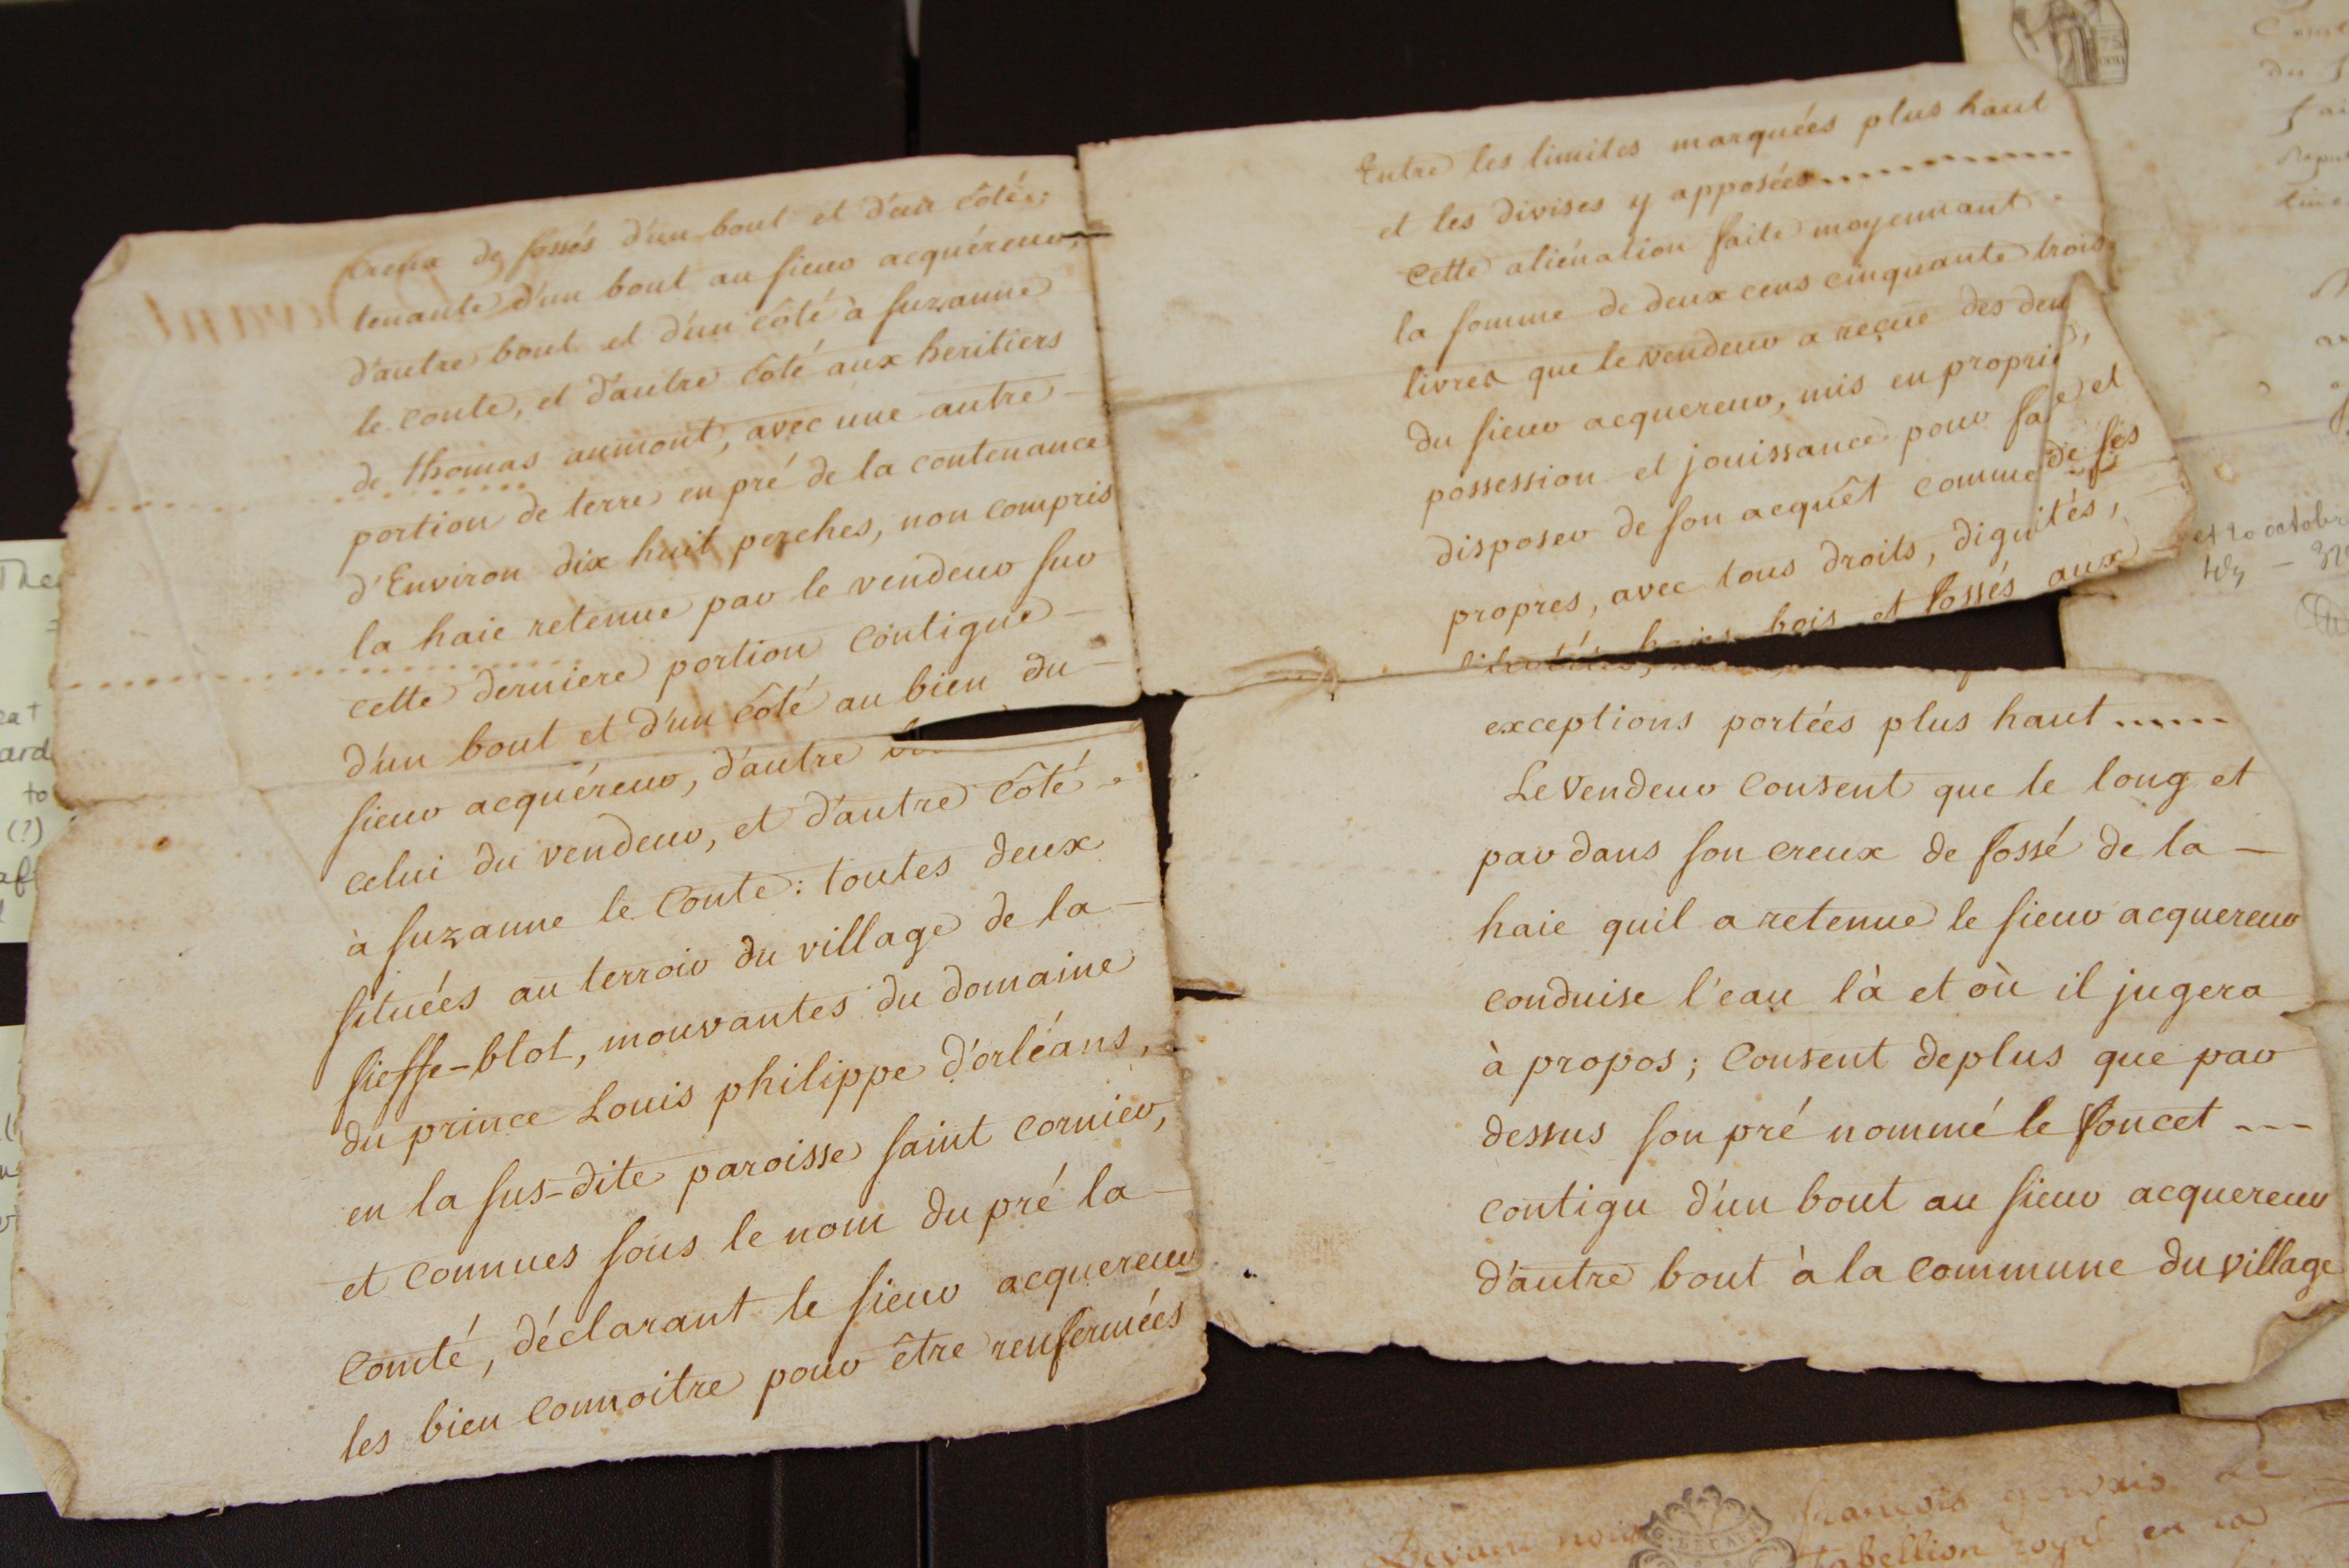 creux de fossés d'un bout et d'un côté;
tenante d'un bout au sieur acquéreur,
d'autre bout et d'un côté à suzanne
le Conte, et d'autre Côté aux heritiers
de thomas aumont, avec une autre
portion de terre en pré de la contenance
d'Environ dix huit perches, non compris
la haie retenue par le vendeur sur
cette derniere portion Contigue
d'un bout et d'un côté au bien du
sieur acquéreur, d'autre
celui du vendeur, et d'autre Côté
à suzanne le Conte: toutes deux
situées au terroir du village de la
fieffe-blot, mouvantes du domaine
du prince Louis philippe d'orléans,
en la sus-dite paroisse saint cornier,
et Connues sous le nom du pré la
Comté, déclarant le sieur acquereur
les bien Connoitre pour être renfermées
Entre les limites marquées plus haut
et les divises y apposées
Cette aliénation faite moyennant
la somme de deux cens cinquante trois
livres que le vendeur a reçue des deu
du sieur acquereur, mis en proprié,
possession et jouissance pour fa e et
disposer de son acquêt comme de ses
propres, avec tous droits, dignités,
haies bois et fossés aux
exceptions portées plus haut
Le vendeur Consent que le long et
par dans son creux de fossé de la
haie quil a retenue le sieur acquereur
conduise l'eau là et où il jugera
à propos; Consent deplus que par
dessus son pré nommé le foncet
contigu d'un bout au sieur acquereur
d'autre bout à la Commune du village
et 20 octobr
Devant nous françois gervais Le
tabellion royal en la
The
eat
ard
to
(?)